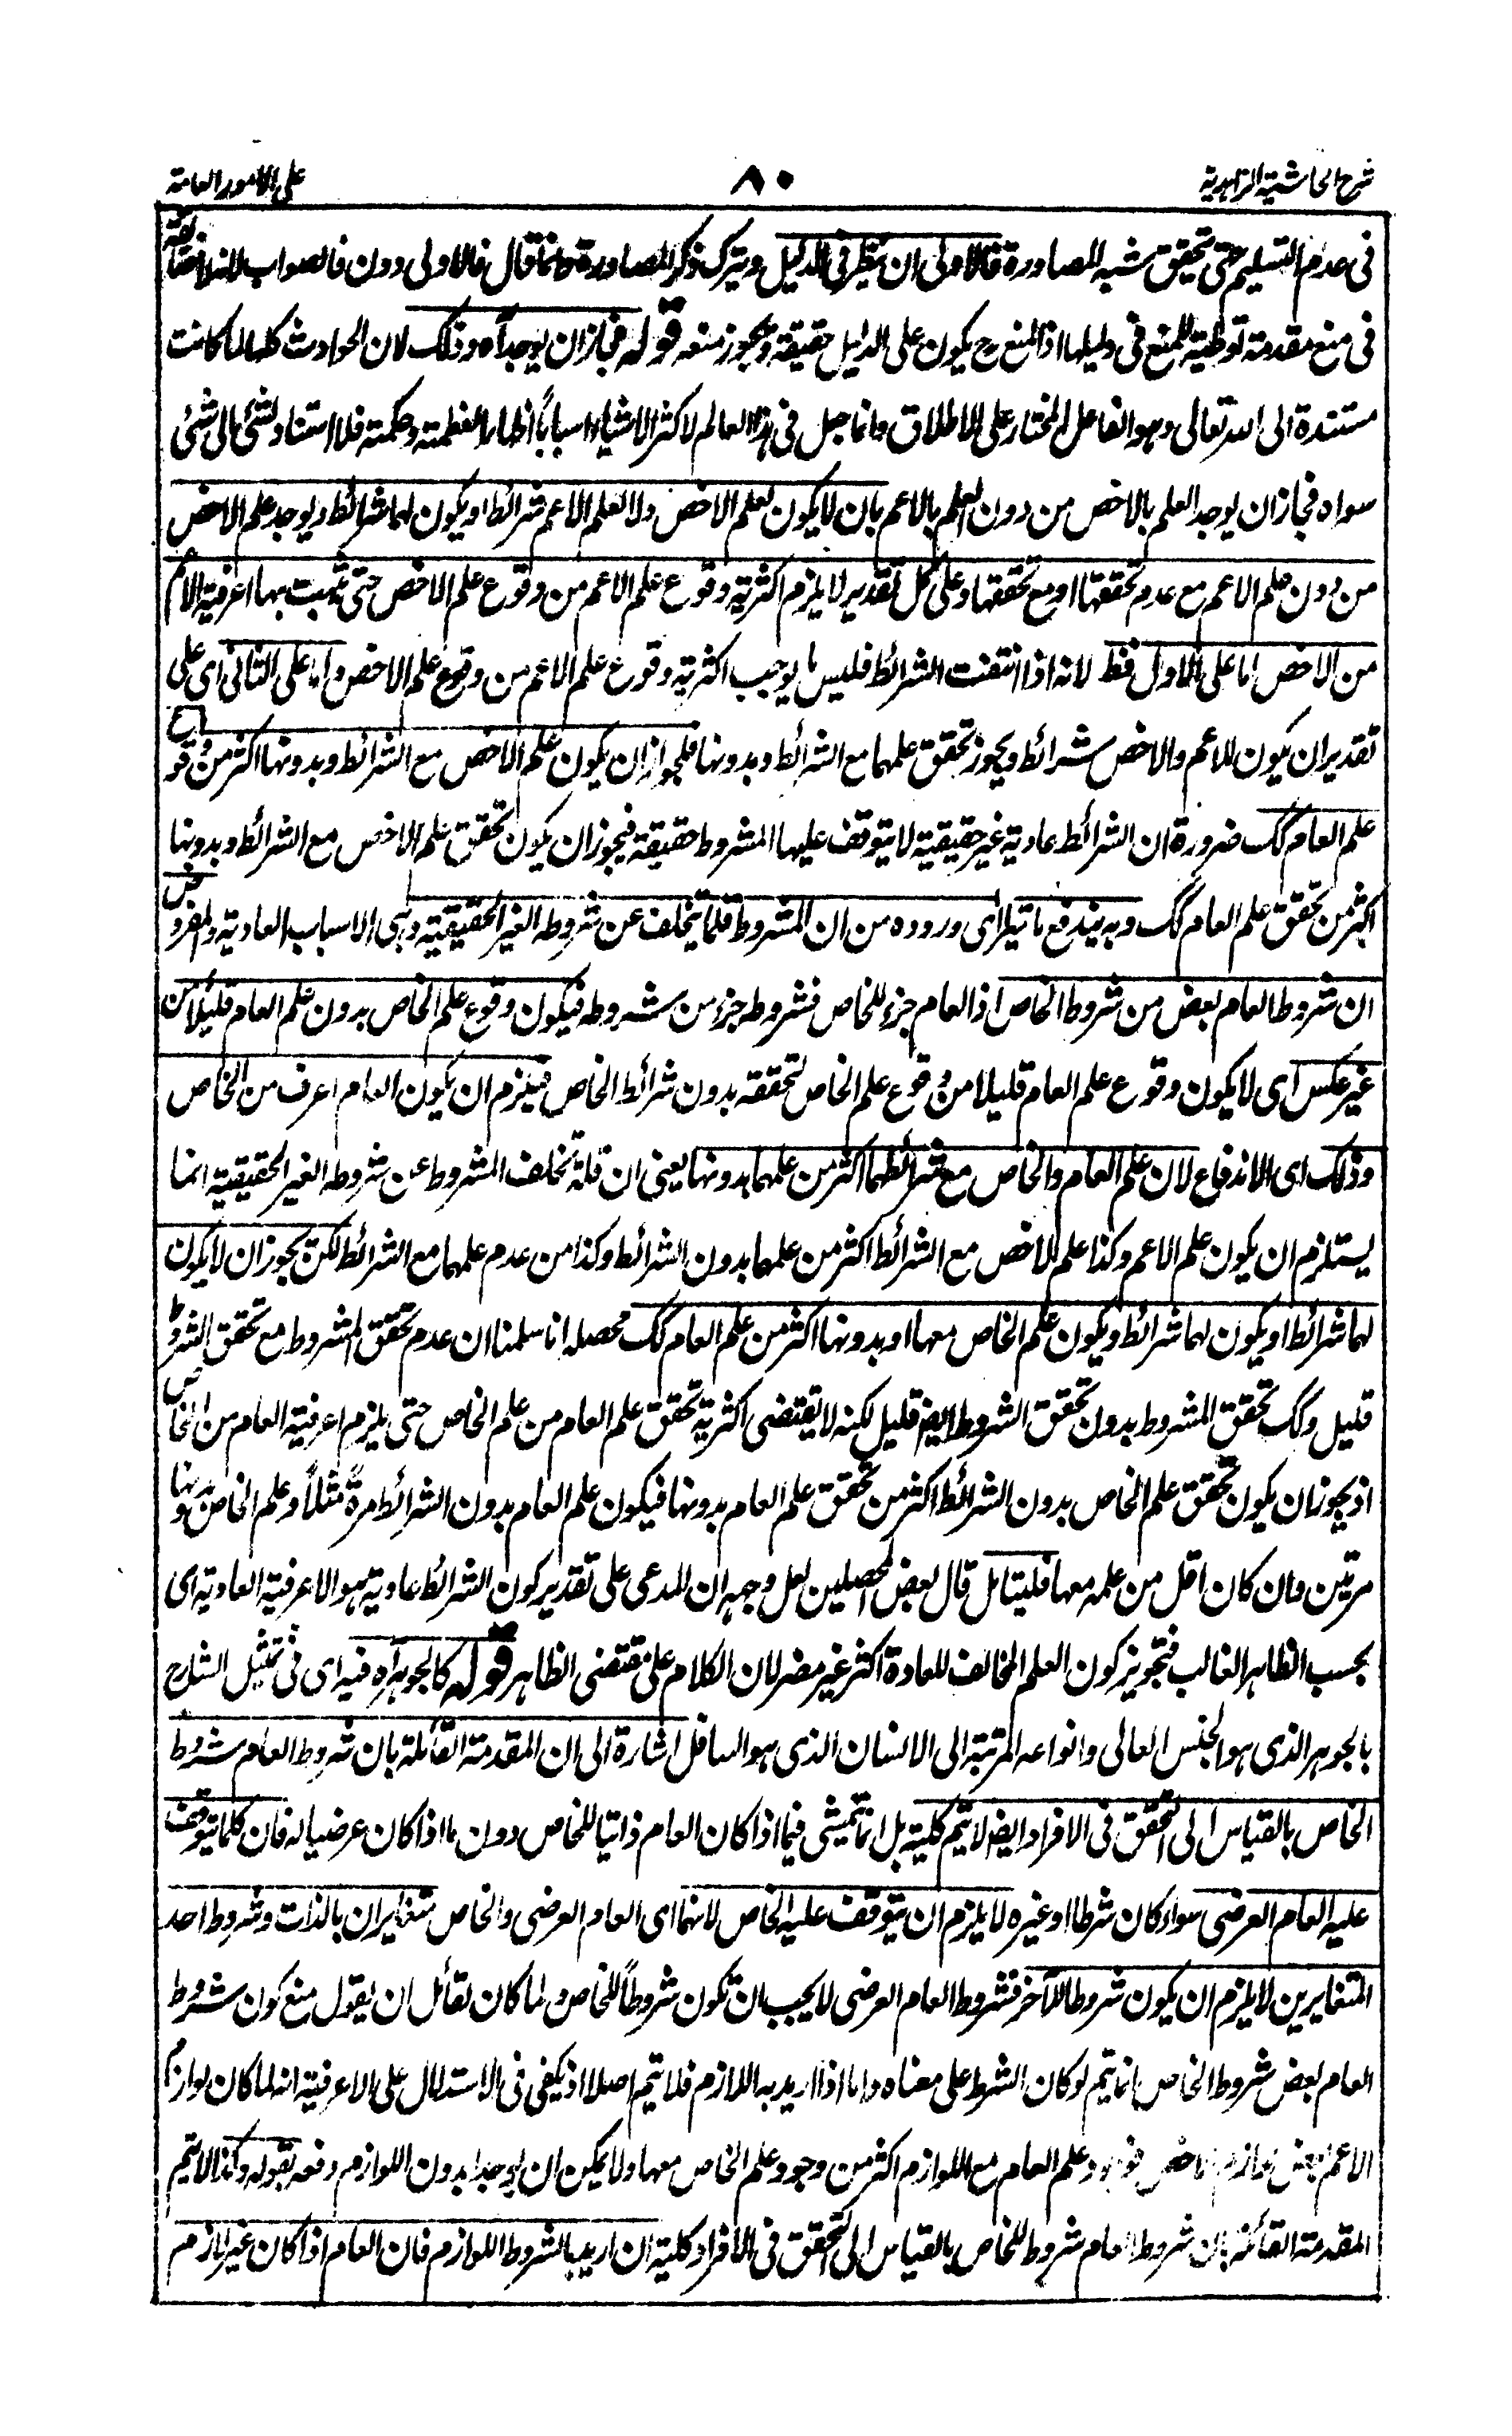 شرح الحاشية الزاهدية
٨٠
على الامور العامة
فى عدم التسليم حتى تحقق شبه المصادرة فالاولى ان ينظر فى الدليل ويترك ذكر المصادرة وانما قال فالاولى دون فالصواب لانه لا مضائقة
فى منع مقدمة توطية للمنع فى دليلها اذ المنع ح يكون على الدليل حقيقة ويجوز منعه قوله فجاز ان يوجد آه وذلك لان الحوادث كلها لما كانت
مستندة الى الله تعالى وهو الفاعل المختار على الاطلاق وانما جعل فى هذا العالم لاكثر الاشياء اسباباً اظهارا لعظمته وحكمته فلا استناد لشئ الى شئ
سواه فجاز ان يوجد العلم بالاخص من دون العلم بالاعم بان لا يكون لعلم الاخص ولا لعلم الاعم شرائط او يكون لهما شرائط ويوجد علم الاخص
من دون علم الاعم مع عدم تحققها او مع تحققها وعلى كل تقدير لا يلزم اكثرية وقوع علم الاعم من وقوع علم الاخص حتى تثبت بها اعرفية الاعم
من الاخص اما على الاول فظ لانه اذا انتفت الشرائط فليس ما يوجب اكثرية وقوع علم الاعم من وقوع علم الاخص واما على الثانى اى على
تقدير ان يكون للاعم والاخص شرائط ويجوز تحقق علمهما مع الشرائط وبدونها فلجواز ان يكون علم الاخص مع الشرائط وبدونها اكثر من وقوع
علم العام كك ضرورة ان الشرائط عادية غير حقيقية لا يتوقف عليها المشروط حقيقة فيجوز ان يكون تحقق علم الاخص مع الشرائط وبدونها
اكثر من تحقق علم العام كك وبه يندفع ما يتراأى وروده من ان المشروط قلما يتخلف عن شروطه الغير الحقيقية وهى الاسباب العادية والمفروض
ان شروط العام بعض من شروط الخاص اذ العام جزء للخاص فشروطه جزء من شروطه فيكون وقوع علم الخاص بدون علم العام قليلا من
غير عكس اى لا يكون وقوع علم العام قليلا من وقوع علم الخاص لتحققه بدون شرائط الخاص فيلزم ان يكون العام اعرف من الخاص
وذلك اى الاندفاع لان علم العام والخاص مع شرائطهما اكثر من علمهما بدونها يعنى ان قلة تخلف المشروط عن شروطه الغير الحقيقية انما
يستلزم ان يكون علم الاعم وكذا علم الاخص مع الشرائط اكثر من علمهما بدون الشرائط وكذا من عدم علمهما مع الشرائط لكن يجوز ان لا يكون
لهما شرائط او يكون لهما شرائط ويكون علم الخاص معها او بدونها اكثر من علم العام كك محصله انا سلمنا ان عدم تحقق المشروط مع تحقق الشروط
قليل وكك تحقق المشروط بدون تحقق الشروط ايضا قليل لكنه لا يقتضى اكثرية تحقق علم العام من علم الخاص حتى يلزم اعرفية العام من الخاص
اذ يجوز ان يكون تحقق علم الخاص بدون الشرائط اكثر من تحقق علم العام بدونها فيكون علم العام بدون الشرائط مرةً مثلاً وعلم الخاص بدونها
مرتين وان كان اقل من علمه معها فليتامل قال بعض المحصلين لعل وجهه ان المدعى على تقدير كون الشرائط عادية هو الاعرفية العادية اى
بحسب الظاهر الغالب فتجويز كون العلم المخالف للعادة اكثر غير مضر لان الكلام على مقتضى الظاهر قوله كالجوهر آه فيه اى فى تمثيل الشارح
بالجوهر الذى هو الجنس العالى وانواعه المرتبة الى الانسان الذى هو السافل اشارة الى ان المقدمة القائلة بان شروط العام شروط
الخاص بالقياس الى التحقق فى الافراد ايضا لا يتم كلية بل انما تتمشى فيما اذا كان العام ذاتيا للخاص دون ما اذا كان عرضيا له فان كلما يتوقف
عليه العام العرضى سواء كان شرطا او غيره لا يلزم ان يتوقف عليه الخاص لانهما اى العام العرضى والخاص متغايران بالذات وشروط احد
المتغايرين لا يلزم ان يكون شروطا للآخر فشروط العام العرضى لا يجب ان تكون شروطاً للخاص ولما كان لقائل ان يقول منع كون شروط
العام بعض شروط الخاص انما يتم لو كان الشرط على معناه واما اذا اريد به اللازم فلا يتم اصلا اذ يكفى فى الاستدلال على الاعرفية انه لما كان لوازم
الاعم بعض لوازم الاخص فوجود علم العام مع اللوازم اكثر من وجود علم الخاص معها ولا يمكن ان يوجدا بدون اللوازم دفعه بقوله وكذا لا تتم
المقدمة القائلة بان شروط العام شروط للخاص بالقياس الى التحقق فى الافراد كلية ان اريد بالشروط اللوازم فان العام اذا كان غير لازم